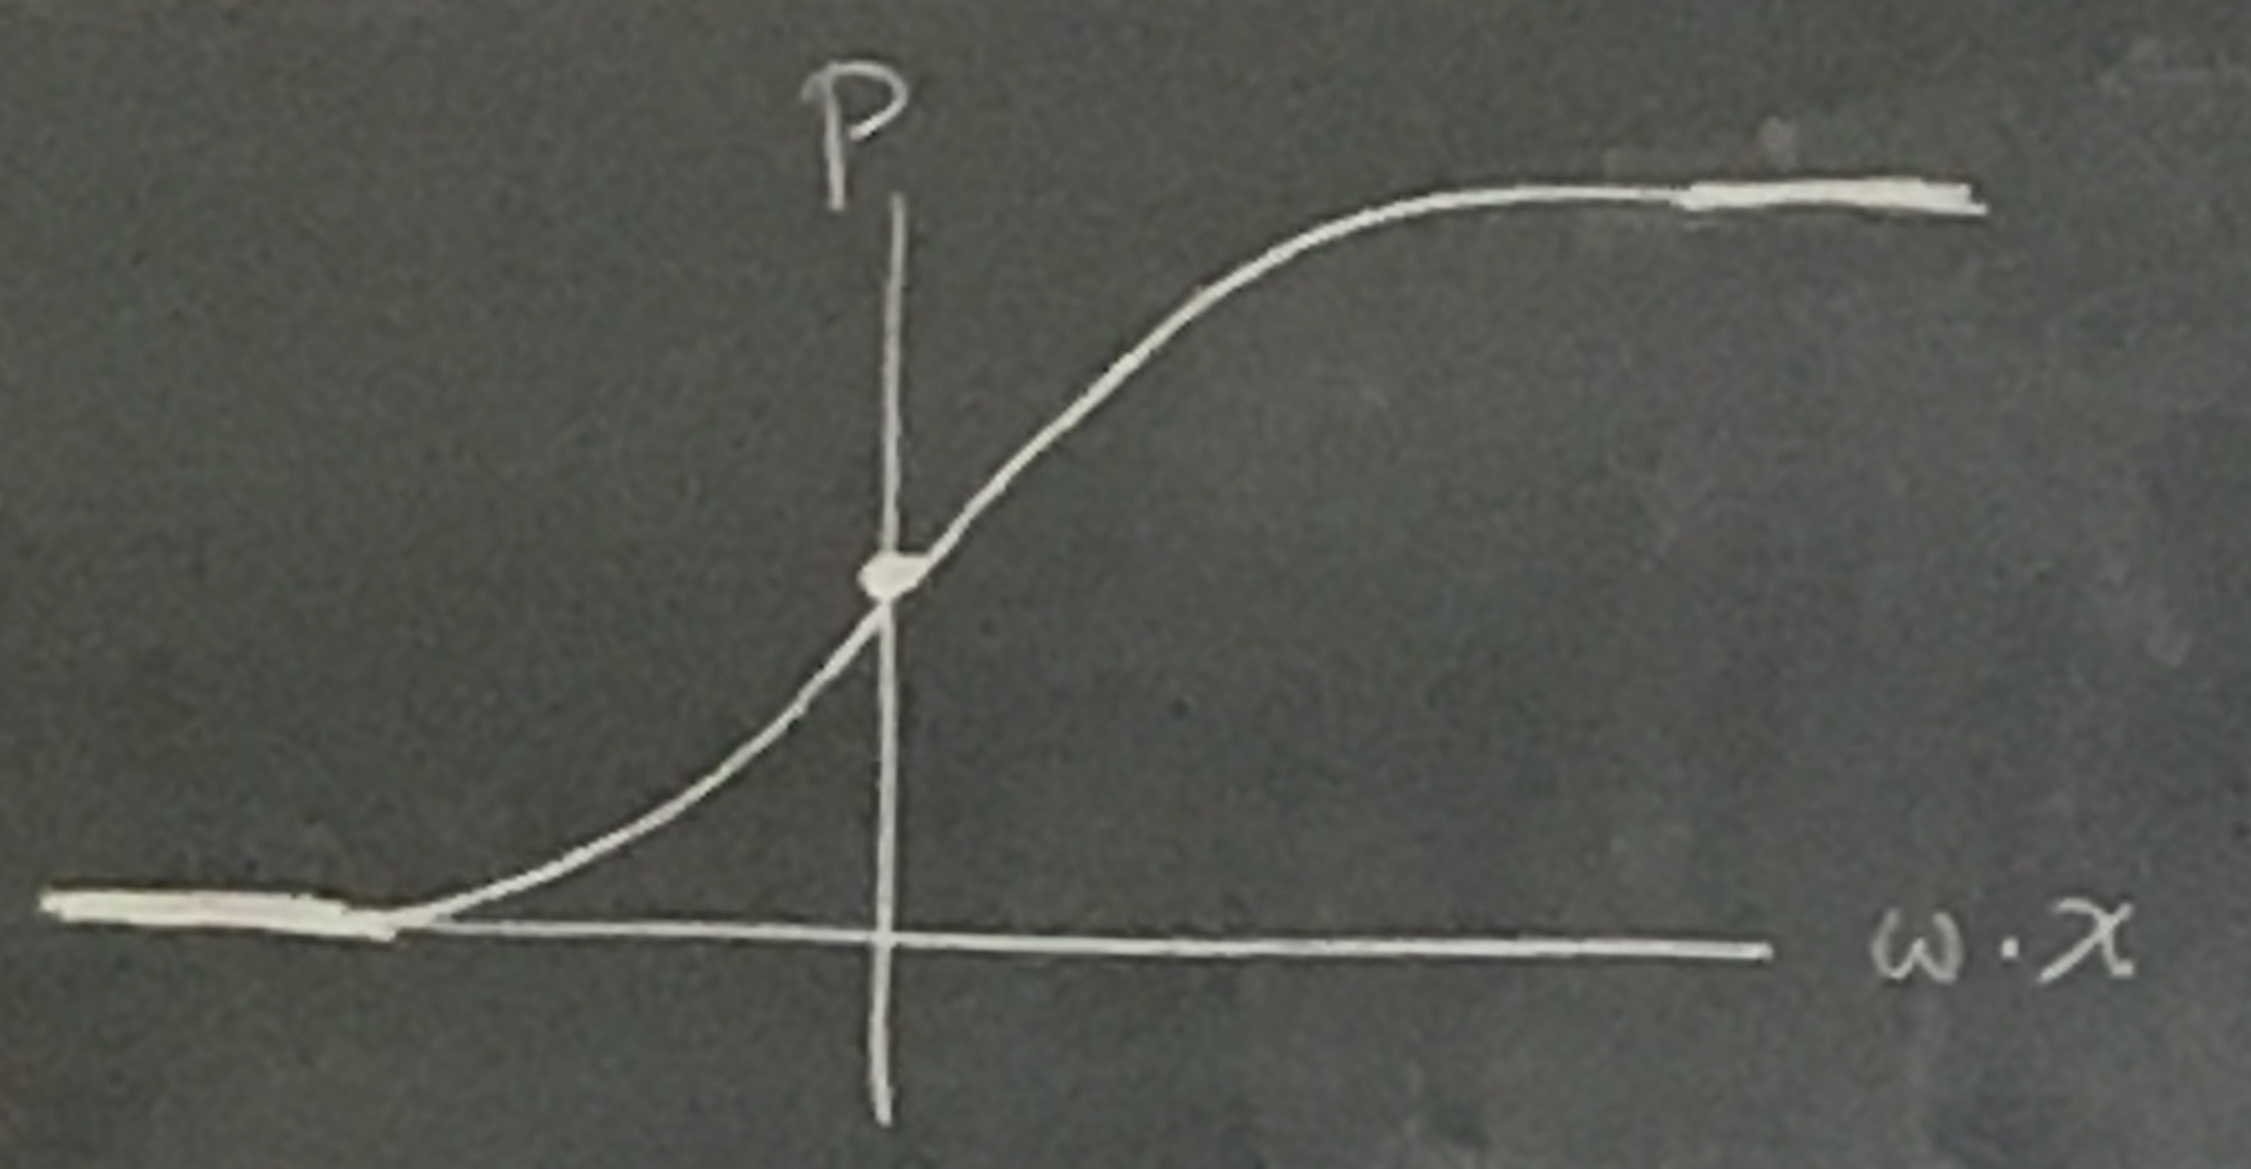 P
ω·x